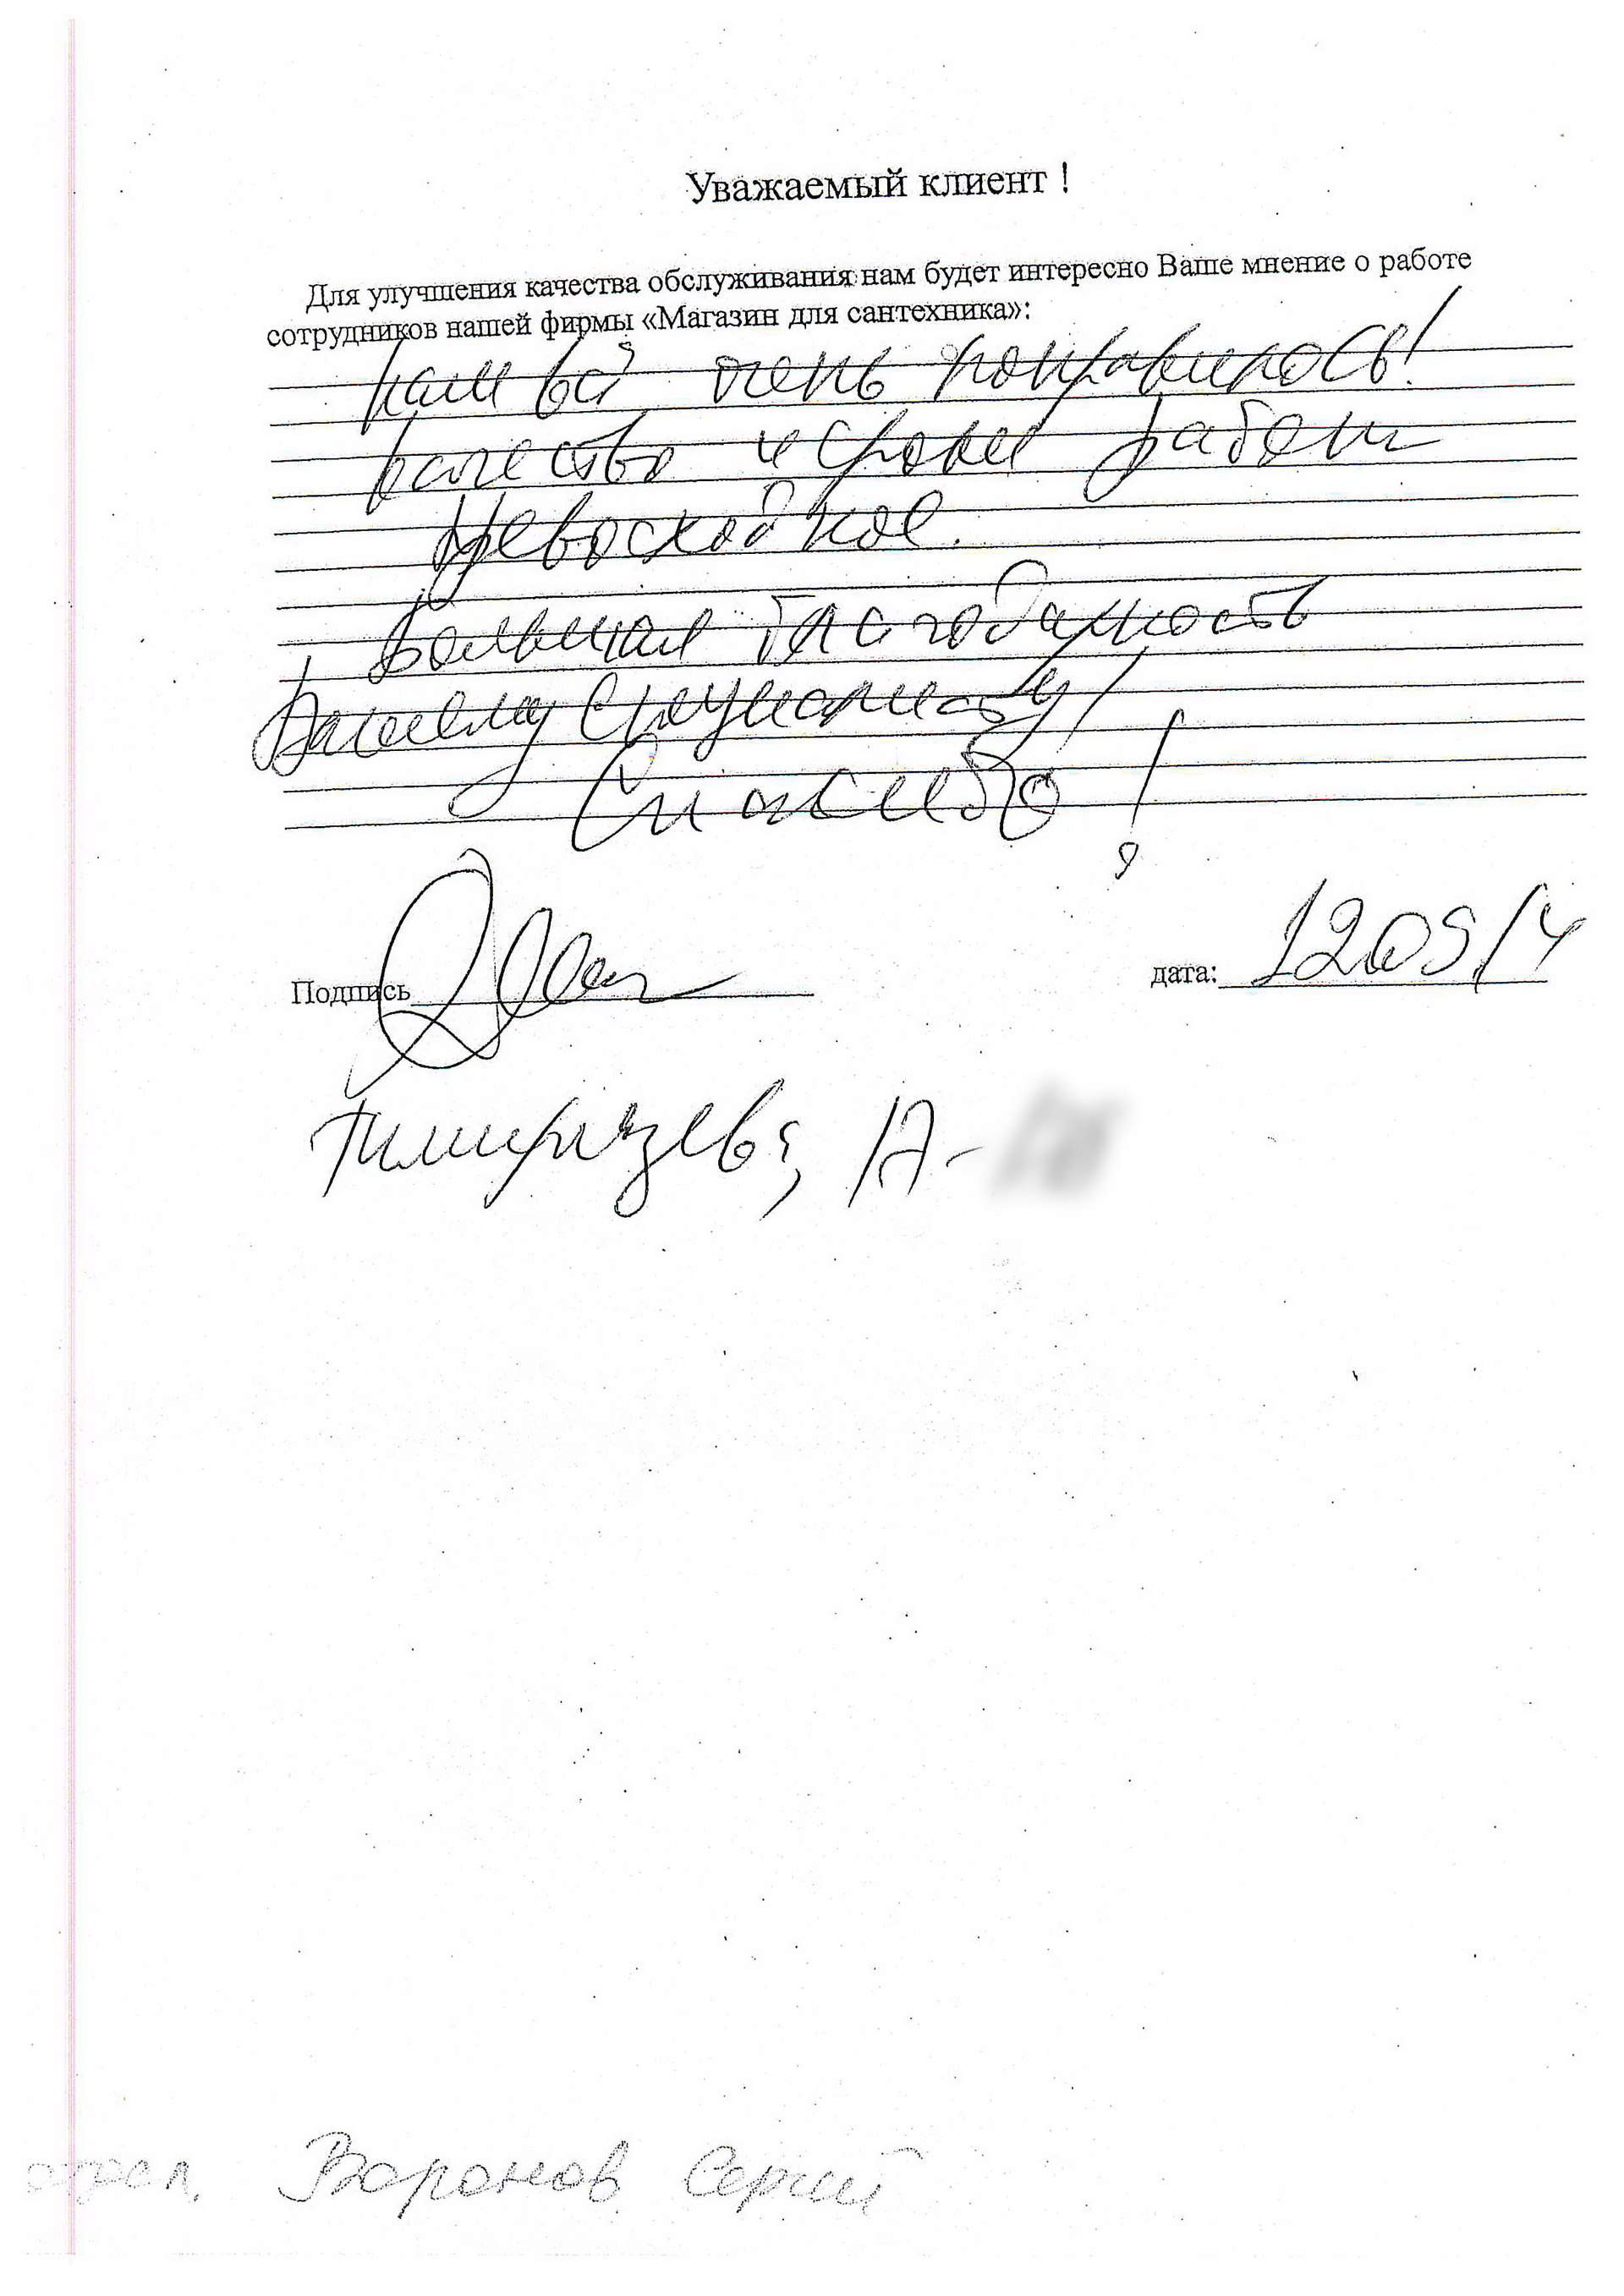 Уважаемый клиент !
Для улучшения качества обслуживания нам будет интересно Ваше мнение о работе
сотрудников нашей фирмы «Магазин для сантехника»:
Нам всё очень понравилось!
качество и сроки работ
Превосходное.
Большая благодарность
Вашему специалисту!
Спасибо!
Подпись
дата: 12.09.14
Тимирязева, 17-
Воронов Сергей